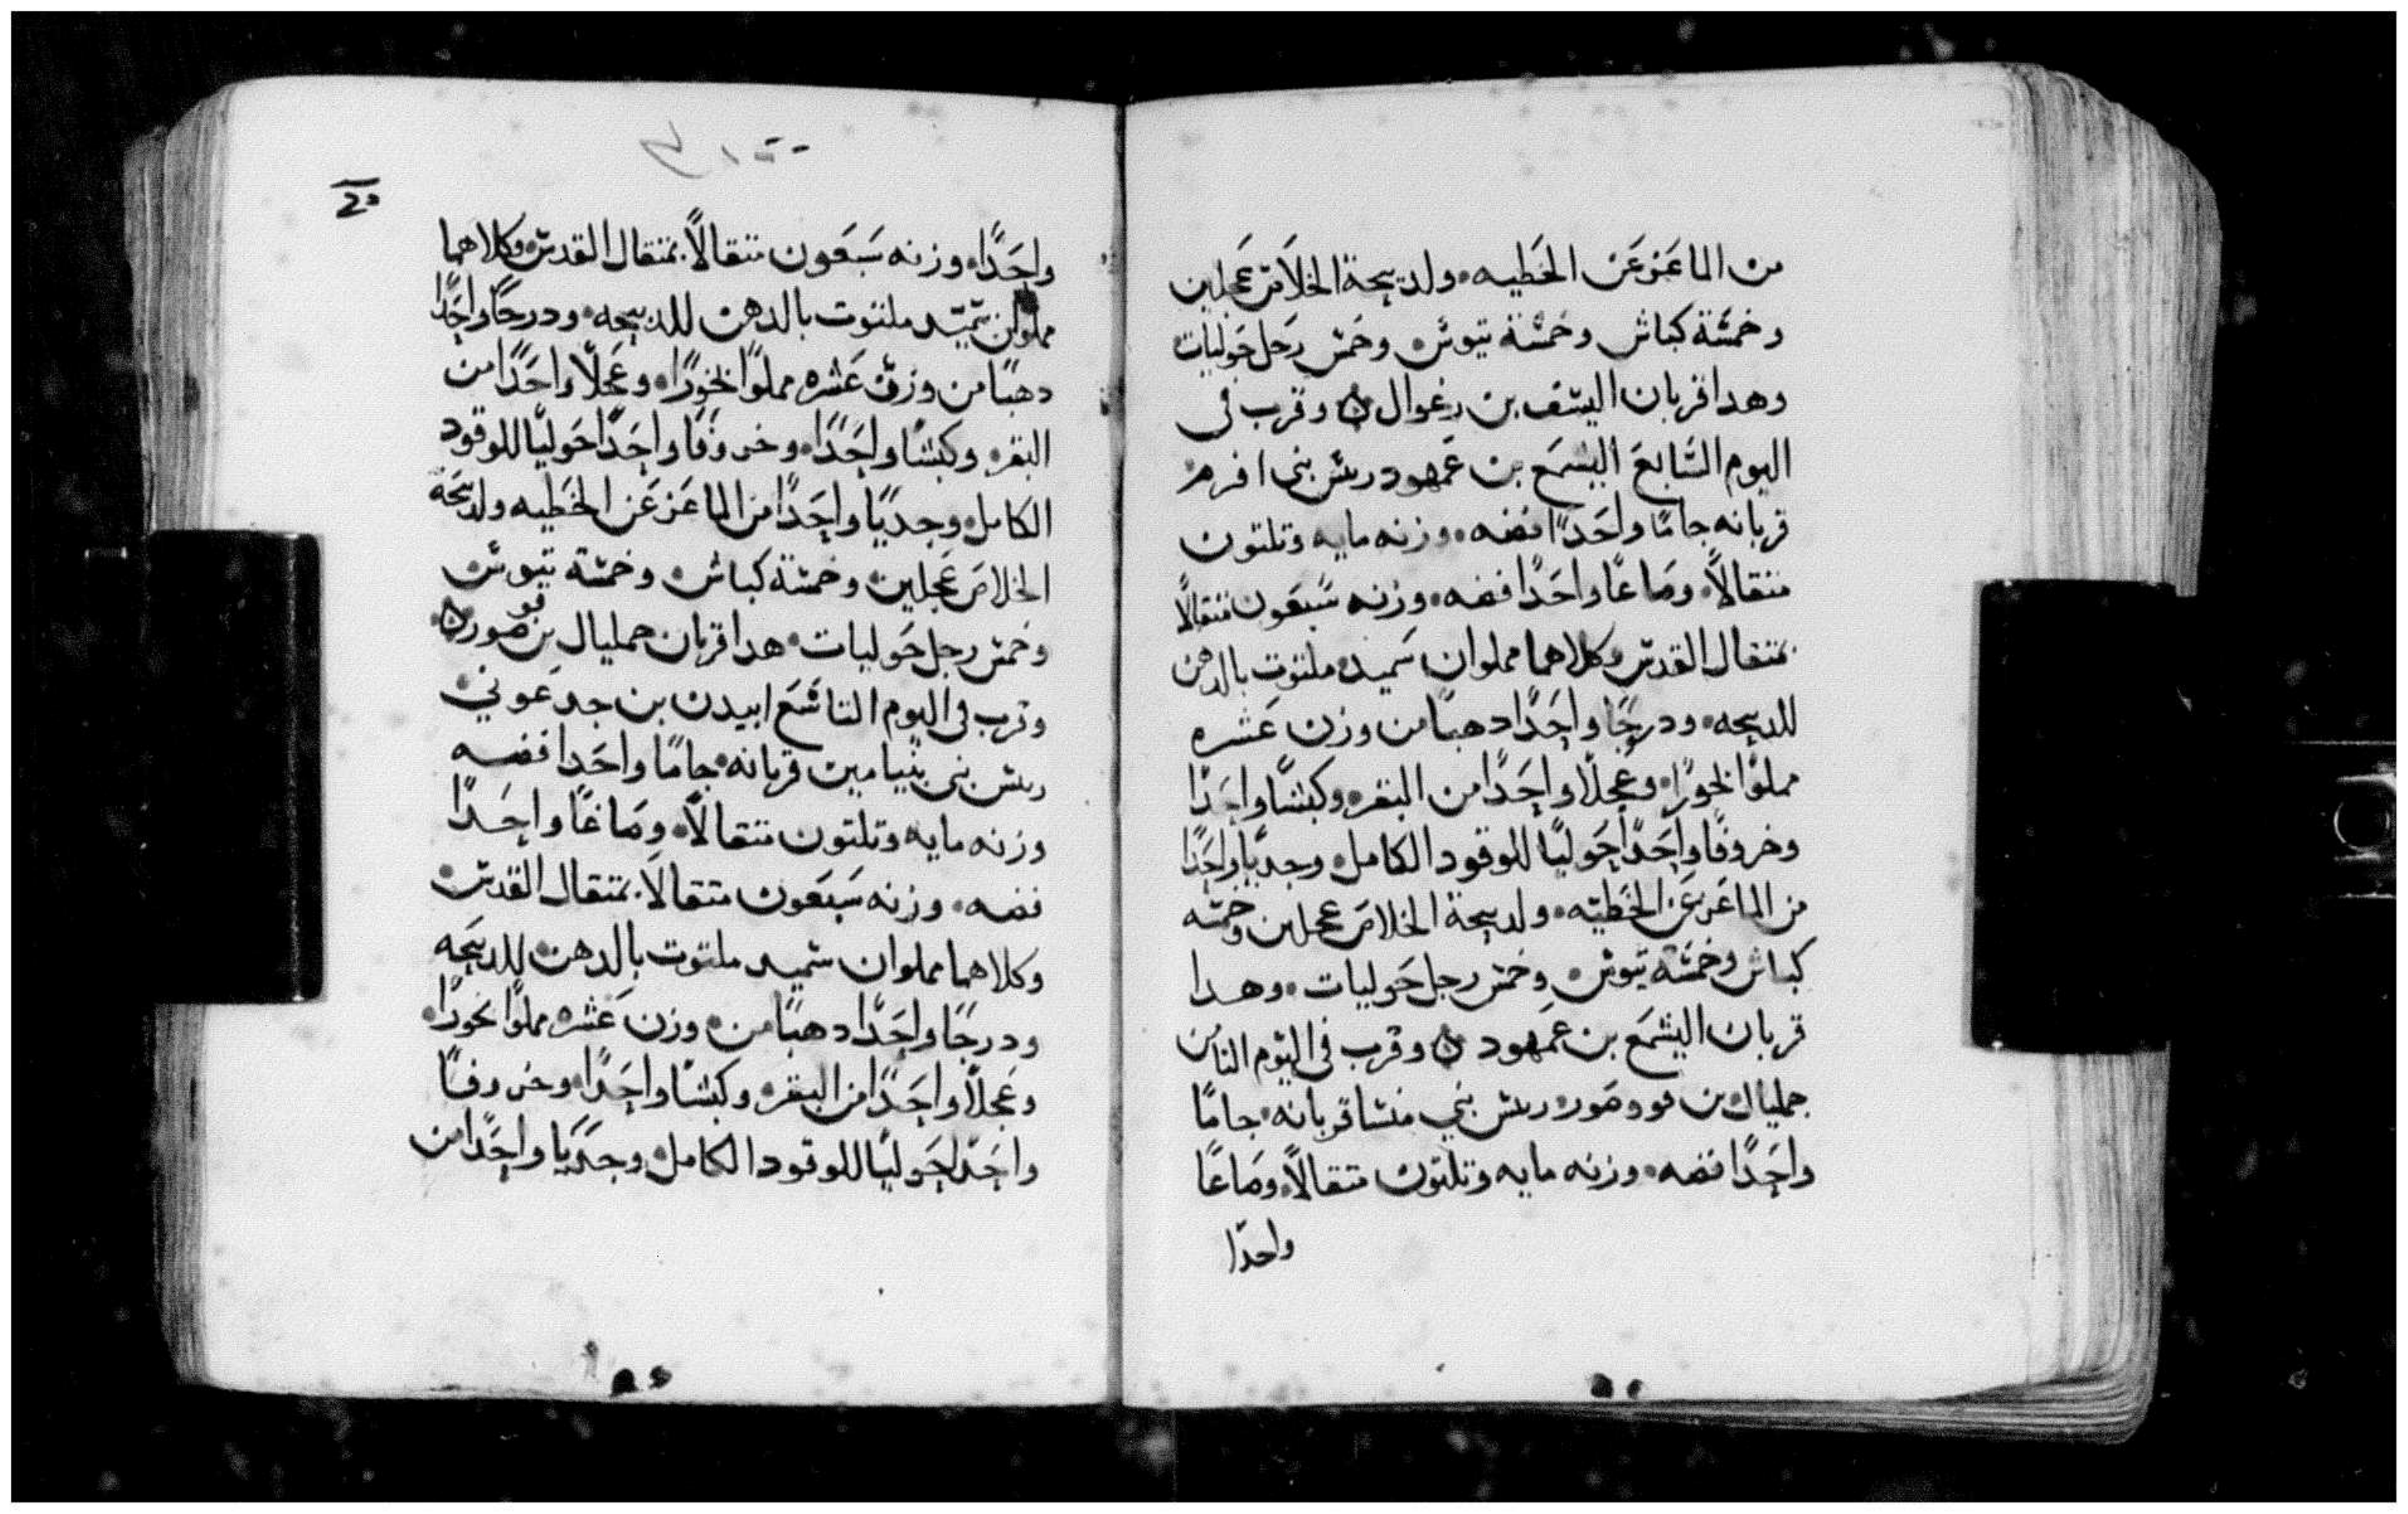 من الماعز عن الخطيه ولديحة الخلاص عجلين
وخمسة كباش وخمسة تيوس وخمس رحل حوليات
وهدا قربان اليسف بن رغوال ٥ وقرب فى
اليوم السابع اليشمع بن عمهود ريس بنى افرم
قربانه جامًا واحدًا فضه وزنه مايه وتلتون
متقالًا وصاعًا واحدًا فضه وزنه سبعون متقالًا
بمتقال القدس وكلاهما مملوان سميد ملتوت بالدهن
للدبيحه ودرجًا واحدًا دهبًا من وزن عشره
مملوًا بخورًا وعجلًا واحدًا من البقر وكبشًا واحدًا
وخروفًا واحدًا حوليًا للوقود الكامل وجديًا واحدًا
من الماعز عن الخطيه ولدبيحة الخلاص عجلين وخمسه
كباش وخمسه تيوس وخمس رحل حوليات وهدا
قربان اليشمع بن عمهود ٥ وقرب فى اليوم التامن
جمليال بن فووصور ريس بني منشا قربانه جامًا
واحدًا فضه وزنه مايه وتلتون متقالًا وصاعًا
واحدًا
20
واحدًا وزنه سبعون متقالًا بمتقال القدس وكلاهما
مملوان سميد ملتوت بالدهن للدبيحه ودرجًا واحدًا
دهبًا من وزن عشره مملوًا بخورًا وعجلًا واحدًا من
البقر وكبشًا واحدًا وخروفًا واحدًا حوليًا للوقود
الكامل وجديًا واحدًا من الماعز عن الخطيه ولدبيحة
الخلاص عجلين وخمسة كباش وخمسة تيوس
وخمس رحل حوليات هدا قربان جمليال بن فوصور ٥
وقرب فى اليوم التاسع ابيدن بن جدعوني
ريس بنى بنيامين قربانه جامًا واحدا فضه
وزنه مايه وتلتون متقالًا وصاعًا واحدًا
فضه وزنه سبعون متقالًا بمتقال القدس
وكلاهما مملوان سميد ملتوت بالدهن للدبيحه
ودرجًا واحدًا دهبًا من وزن عشره مملوًا بخورًا
وعجلًا واحدًا من البقر وكبشًا واحدًا وخروفًا
واحدًا حوليًا للوقود الكامل وجديًا واحدًا من